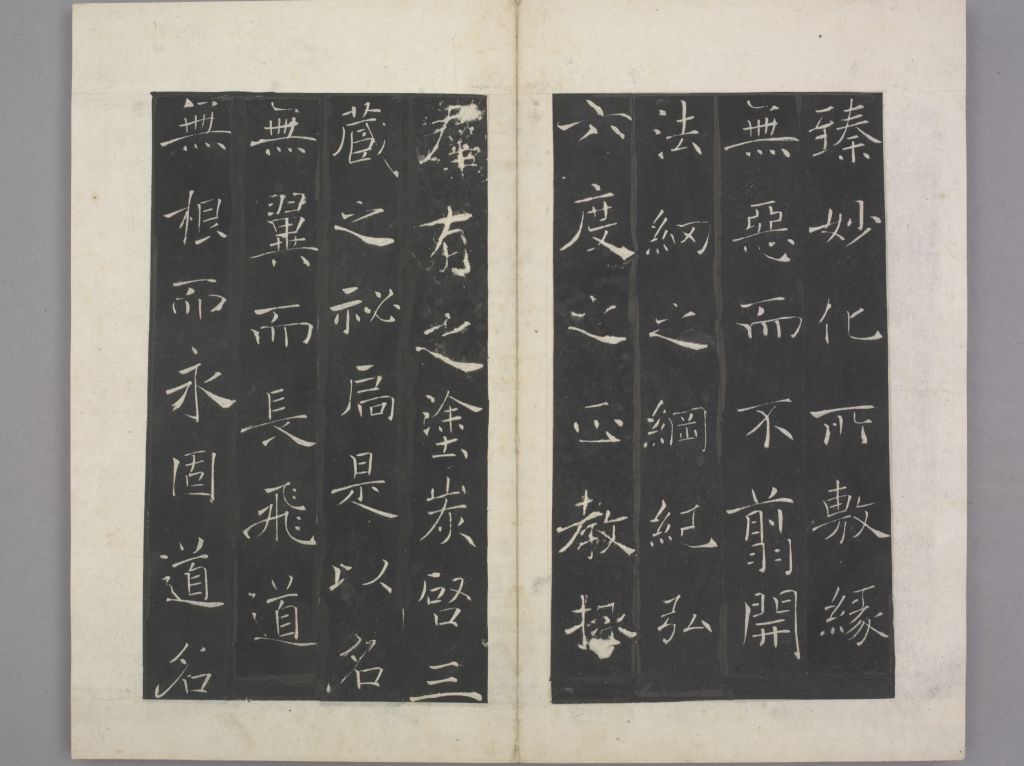 臻妙化所敷緣
無惡而不翦開
法網之綱紀弘
六度之正教拯
羣有之塗炭啓三
藏之祕扃是以名
無翼而長飛道
無根而永固道名